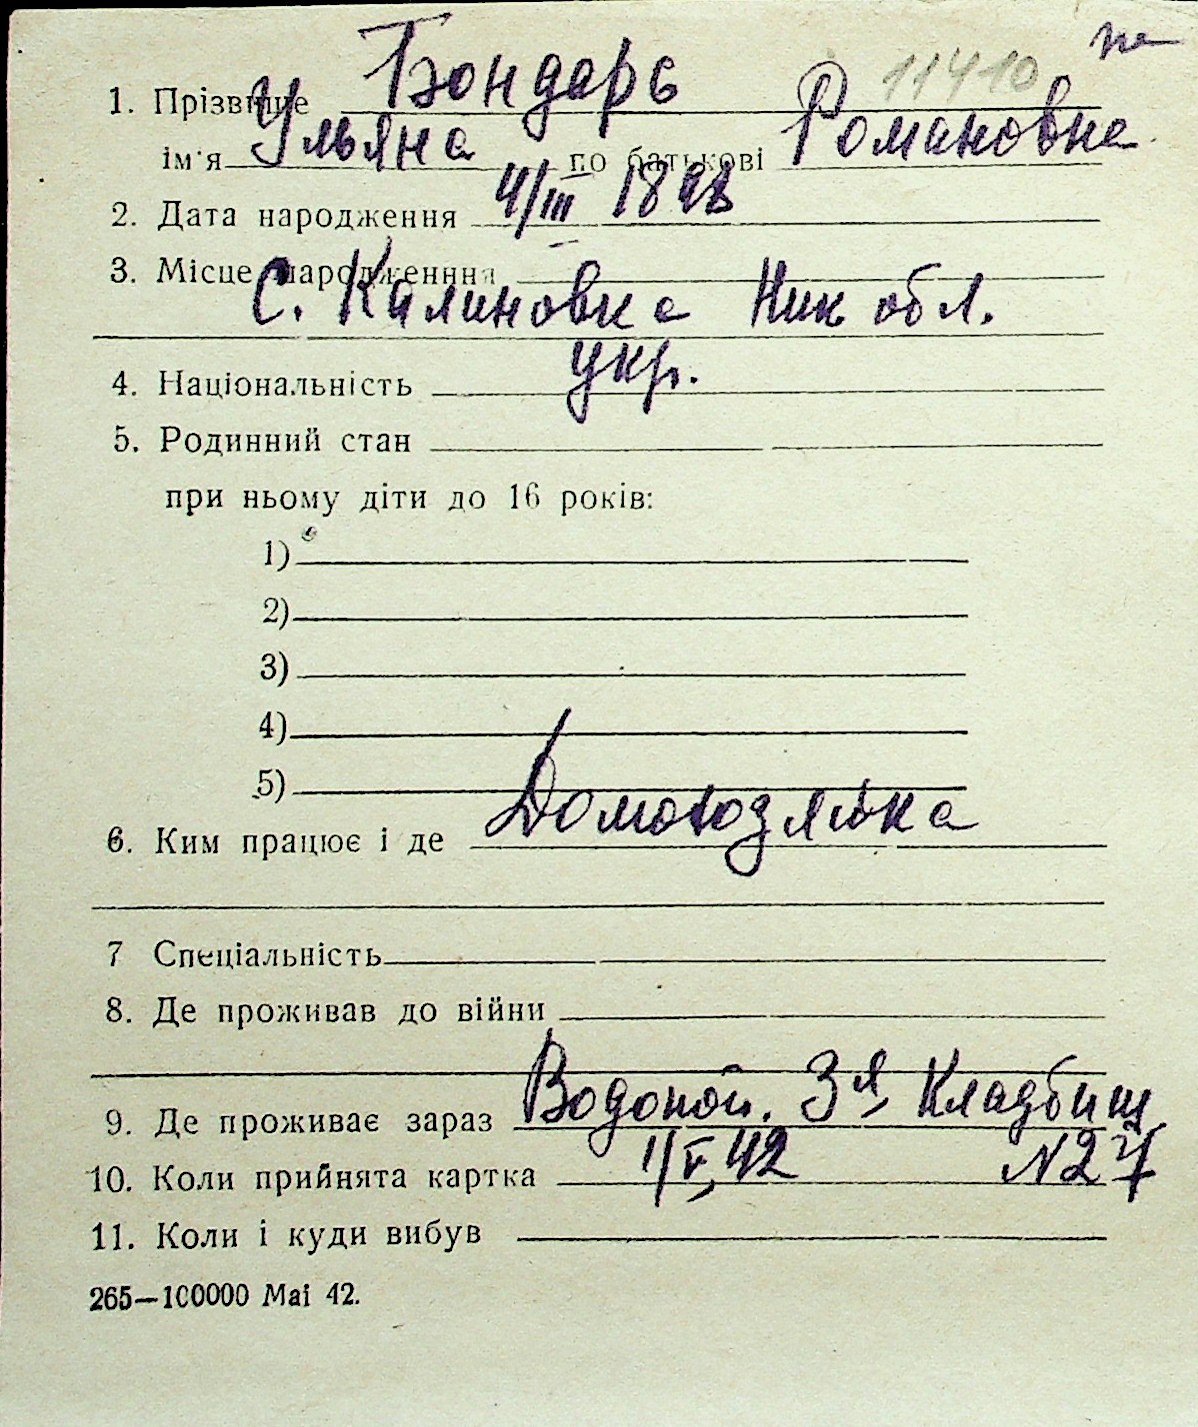 11410
1. Прізвище Бондарь
ім'я Ульяна по батькові Романовна
2. Дата народження 4/III 1898
3. Місце народженння
С. Калиновка Ник обл.
4. Національність укр.
5. Родинний стан
при ньому діти до 16 років:
1)
2)
3)
4)
5)
6. Ким працює і де Домохозяйка
7 Спеціальність
8. Де проживав до війни
9. Де проживає зараз Водопой. 3я Кладбищ
10. Коли прийнята картка 1/V, 42 N27
11. Коли і куди вибув
265—100000 Mai 42.